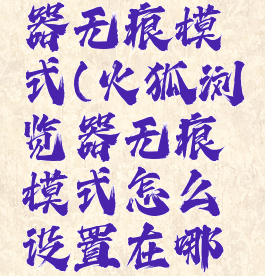 器无痕模
式(火狐浏
览器无痕
模式怎么
设置在哪